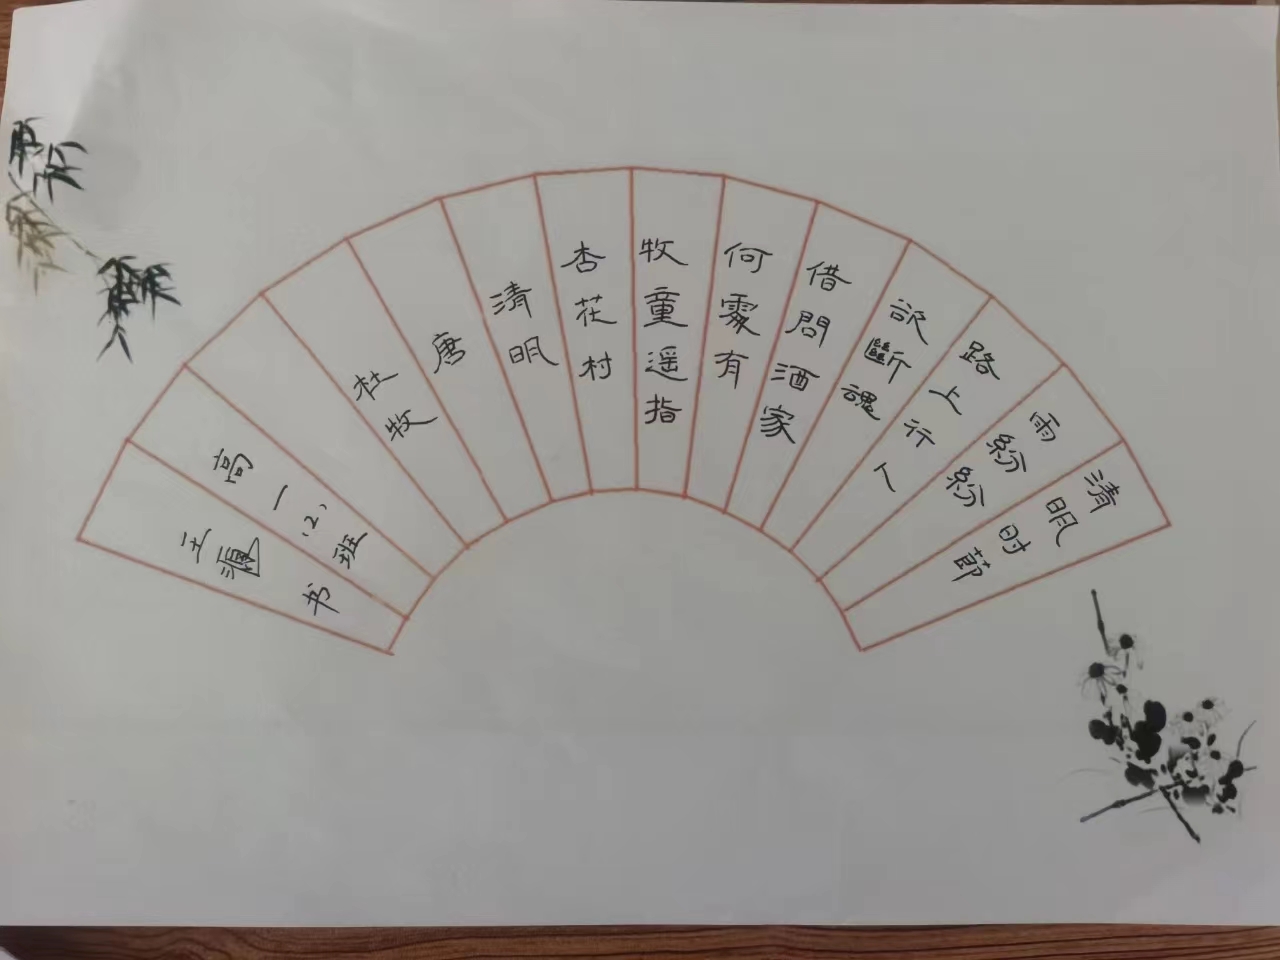 清明时節
雨紛紛
路上行人
欲斷魂
借問酒家
何處有
牧童遥指
杏花村
清明
唐
杜牧
高一(2)班
书